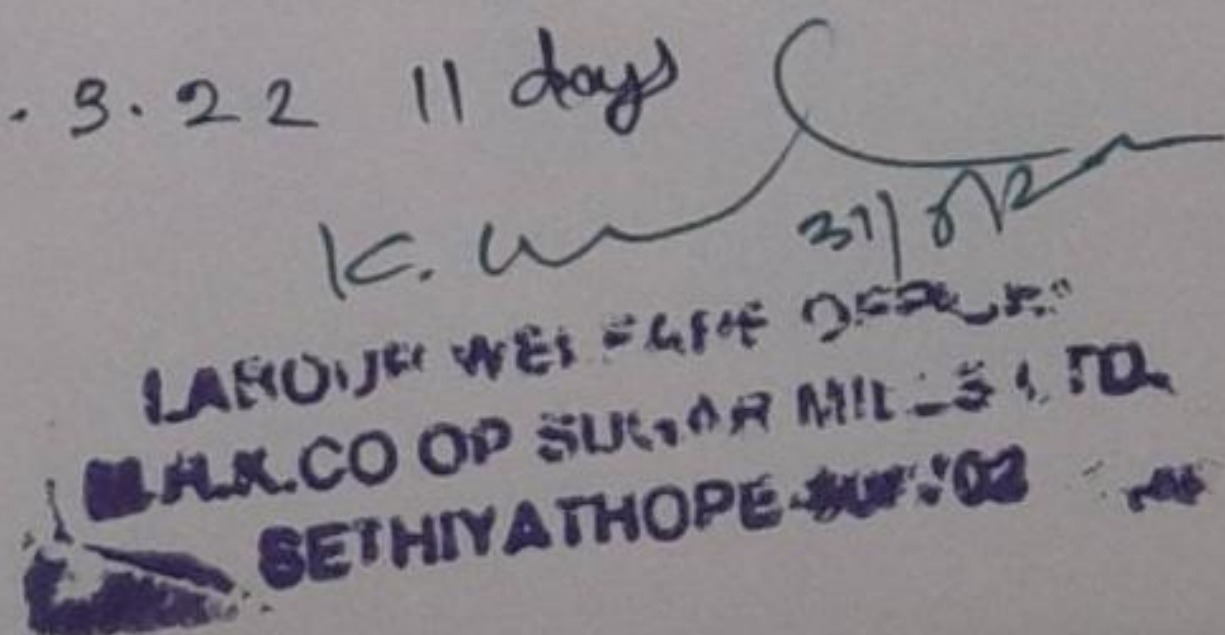 . 3. 22 11 days
K.
31/
LABOUR WELFARE OFFICER
M.R.K. CO OP SUGAR MILLS LTD.
SETHIYATHOPE